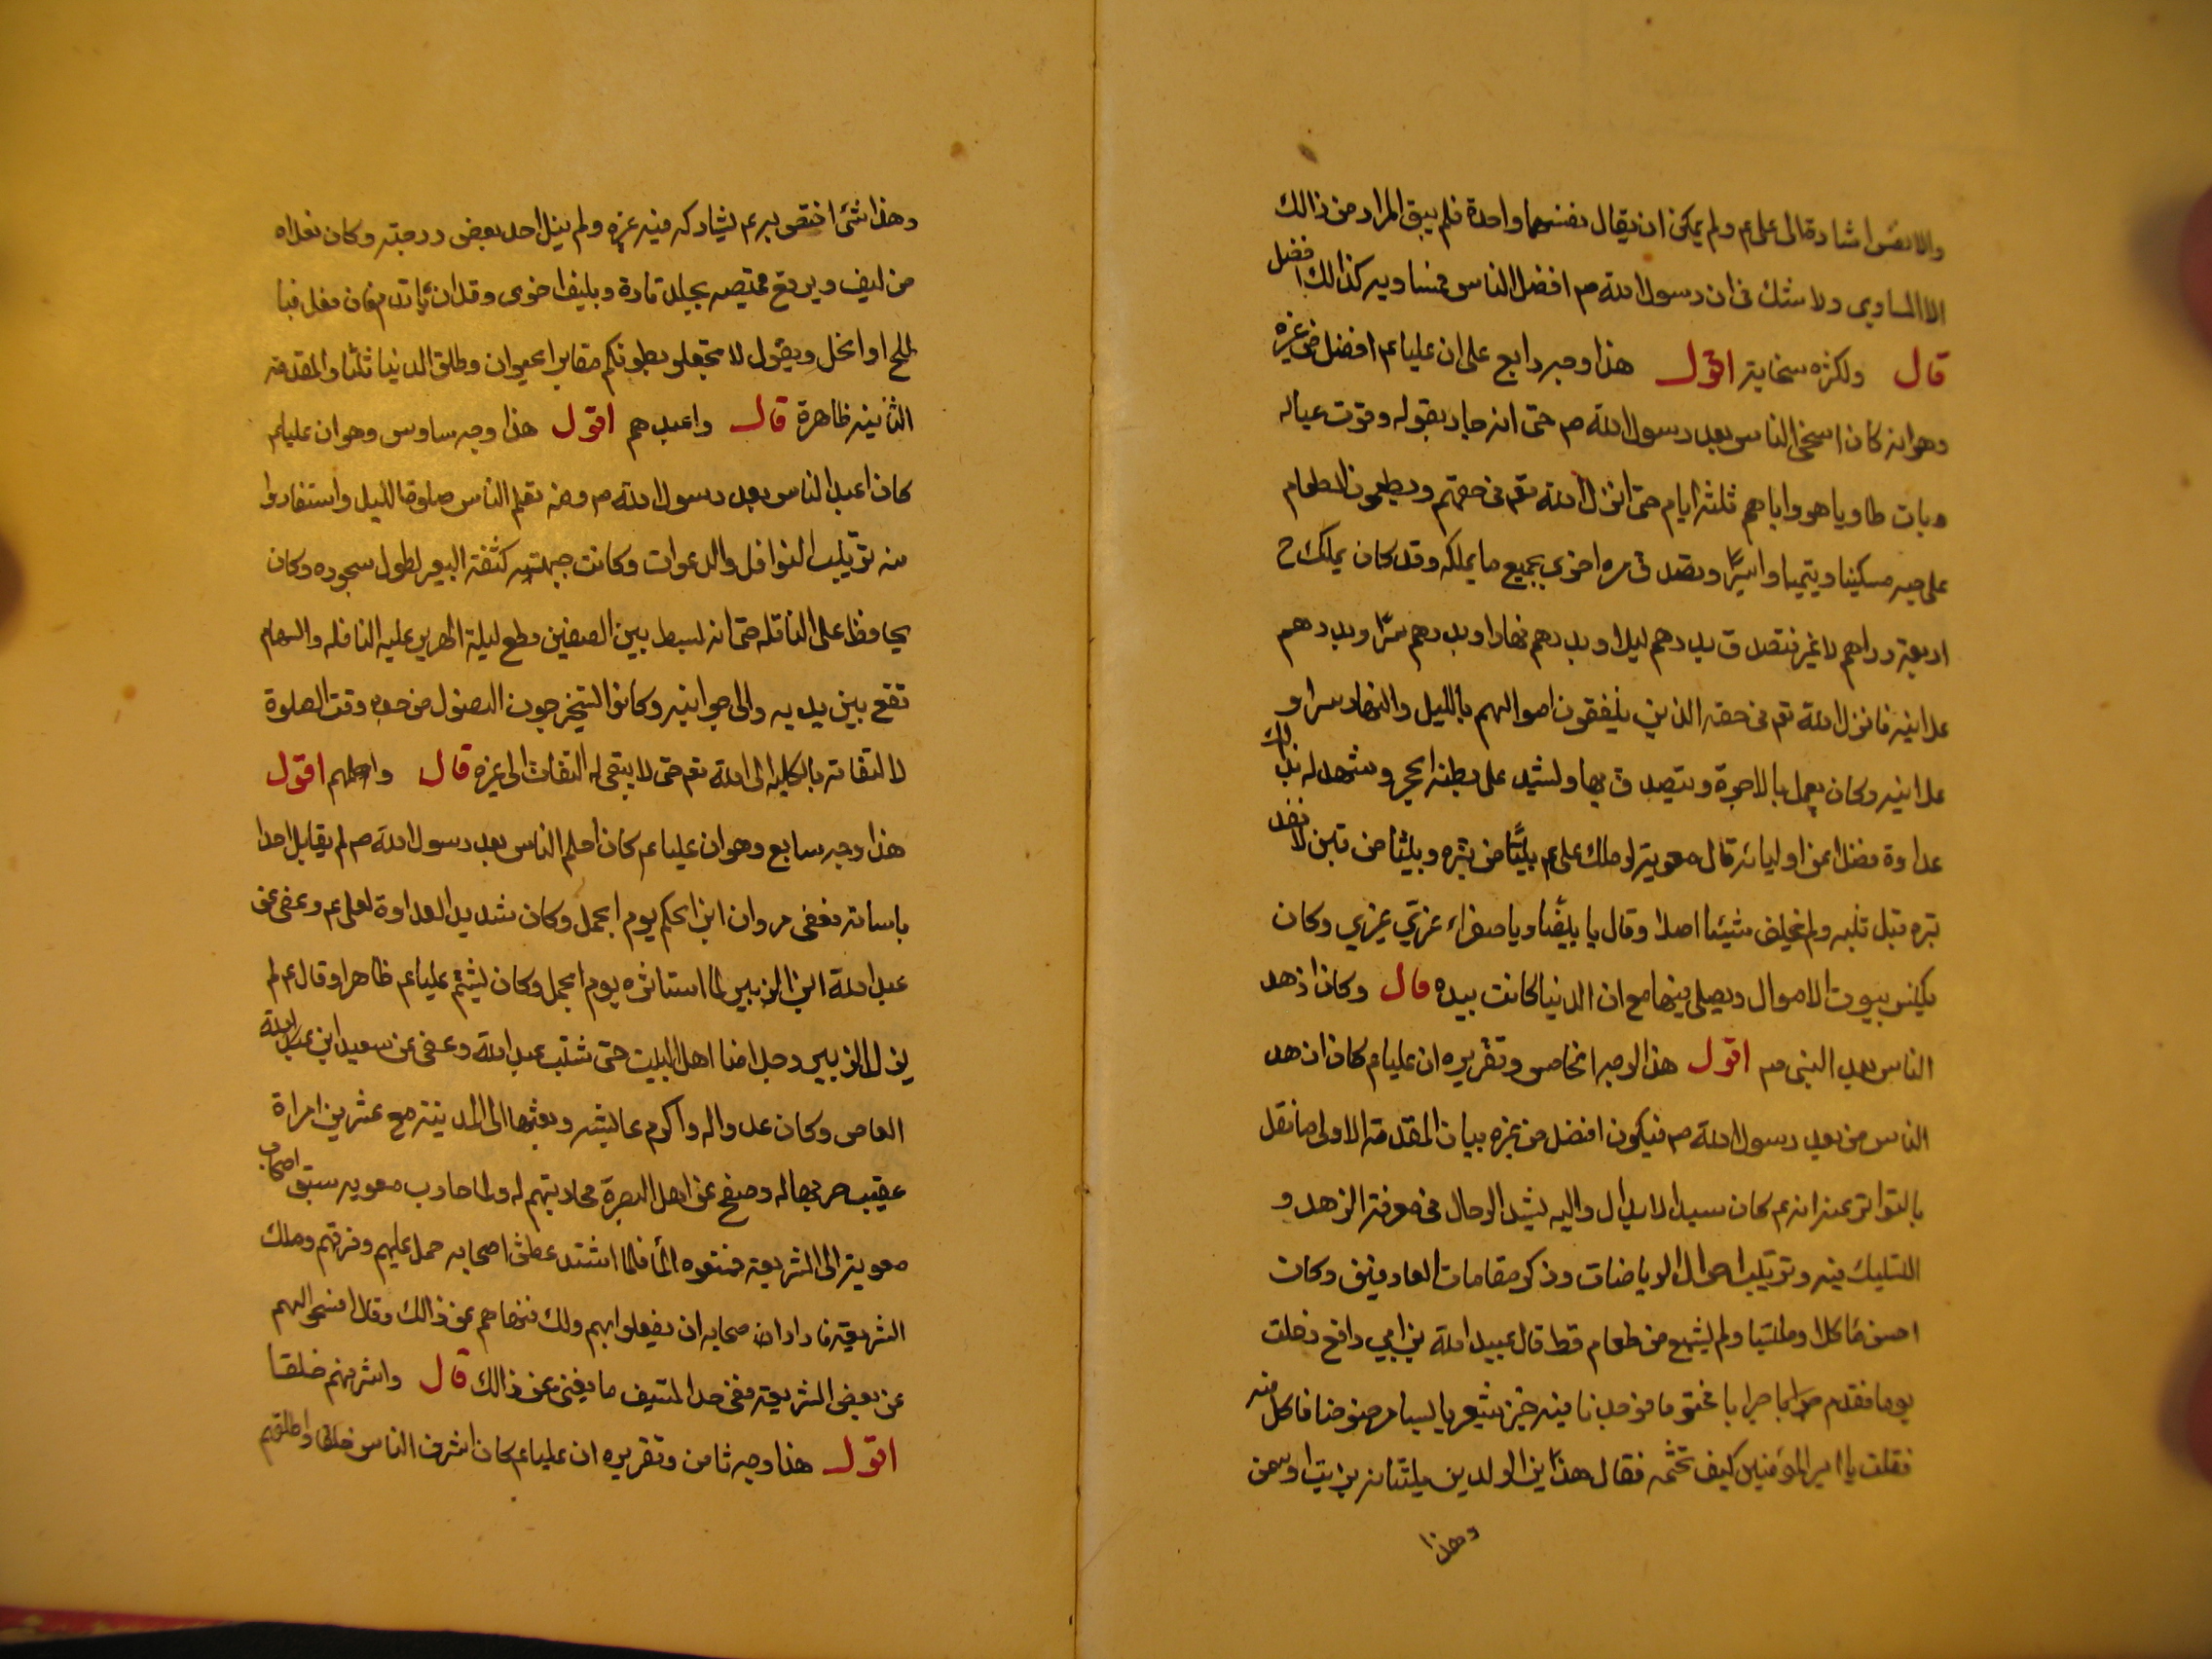 والانفس اشارة الى على ع ولم يمكن ان يقال نفسهما واحدة فلم يبق المراد من ذالك
الا المساوي ولا شك فى ان رسول الله ص افضل الناس فمساويه كذالك افضل
قال ولكثرة سخايته اقول هذا وجه رابع على ان عليا ع افضل من غيره
وهو انه كان اسخى الناس بعد رسول الله ص حتى انه جاد بقوله وقوت عياله
وبات طاويا هو واياهم ثلثه ايام حتى انزل الله تعم فى حقهم ويطعمون الطعام
على حبه مسكينا ويتيما واسيرًا وتصدق مره اخرى بجميع ما يملكه وقد كان يملك ح
اربعة دراهم لا غير فتصدق بدرهم ليلا وبدرهم نهارا وبدرهم سرًا وبدرهم
علانيه فانزل الله تعم فى حقه الذين ينفقون اموالهم بالليل والنهار سرا و
علانيه وكان يعمل بالاجرة ويتصدق بها ويشيد على بطنه الحجر وشهد له بذلك
عداوة فضلا عن اوليائه قال معوية لو ملك على ع بيتًا من تبره وبيتا من تبن لانفد
تبره قبل تبنه ولم يخلف شيئا اصلا وقال يا بيضا ويا صفراء غري غيري وكان
يكنس بيوت الاموال ويصلى فيها مع ان الدنيا كانت بيده قال وكان ازهد
الناس بعد النبى ص اقول هذا لوجه الخامس وتقريره ان عليا ع كان ازهد
الناس من بعد رسول الله ص فيكون افضل من غيره بيان المقدمة الاولى ما نقل
بالتواتر عنه انه ع كان سيد الابدال واليه يشد الرحال فى معرفة الزهد و
التسليك فيه وترتيب احوال الرياضات وذكر مقامات العارفين وكان
اخشن ماكلا وملبسا ولم يشبع من طعام قط قال عبيد الله بن ابي رافع دخلت
يوما فقدم جرابا مختوما فوجدنا فيه خبز شعير يابسا مرضوضا فاكل منه
فقلت يا امير المؤمنين كيف تختمه فقال هذاين الولدين يلتانه بزيت او سمن
وهذا
وهذا شئ اختص به ع لم يشاركه فيه غيره ولم ينل احد بعض درجته وكان نعلاه
من ليف ويرقع قميصه بجلد تارة وبليف اخرى وقل ان ياتدم فان فعل فبا
لملح او الخل ويقول لا تجعلو بطونكم مقابر الحيوان وطلق الدنيا ثلثا والمقدمة
الثانيه ظاهرة قال واعبدهم اقول هذا وجه سادس وهو ان عليا ع
كان اعبد الناس بعد رسول الله ص ومنه تعلم الناس صلوة الليل واستفادوا
منه ترتيب النوافل والدعوات وكانت جبهته كثفنة البعير لطول سجوده وكان
يحافظ على النافله حتى انه بسط بين الصفين نطع ليلة الهرير عليه النافله والسهام
تقع بين يديه والى جوانبه وكانوا يستخرجون النصول من جسده وقت الصلوة
لالتفاته بالكليه الى الله تعم حتى لا يبقى له التفات الى غيره قال واحلمهم اقول
هذا وجه سابع وهو ان عليا ع كان احلم الناس بعد رسول الله ص لم يقابل احدا
باساته فعفى مروان ابن الحكم يوم الجمل وكان شديد العداوة لعلى ع وعفى عن
عبد الله ابن الزبير لما استاثره يوم الجمل وكان يشتم عليا ع ظاهرا وقال ع لم
يزل الزبير رجلا منا اهل البيت حتى شب عبد الله وعفى عن سعيد ابن عبد الله
العاص وكان عدوا له واكرم عايشه وبعثها الى المدينة مع عشرين امراة
عقيب حربها له وصفح عن اهل البصرة محاربتهم له ولما حارب معويه سبق اصحاب
معوية الى الشريعه فمنعوه الماء فلما اشتد عطش اصحابه حمل عليهم وفرقهم وملك
الشريعه فاراد اصحابه ان يفعلوا بهم ذلك فنهاهم عن ذالك وقال افسحوا لهم
عن بعض الشريعه ففى حد السيف ما يغنى عن ذالك قال واشرفهم خلقا
اقول هذا وجه ثامن وتقريره ان عليا ع كان اشرف الناس خلقا واطلقهم